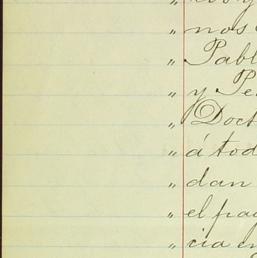 " nos
" Pabl
" y Pe
" Doct
" á tod
" dan
" el pag
" cia en